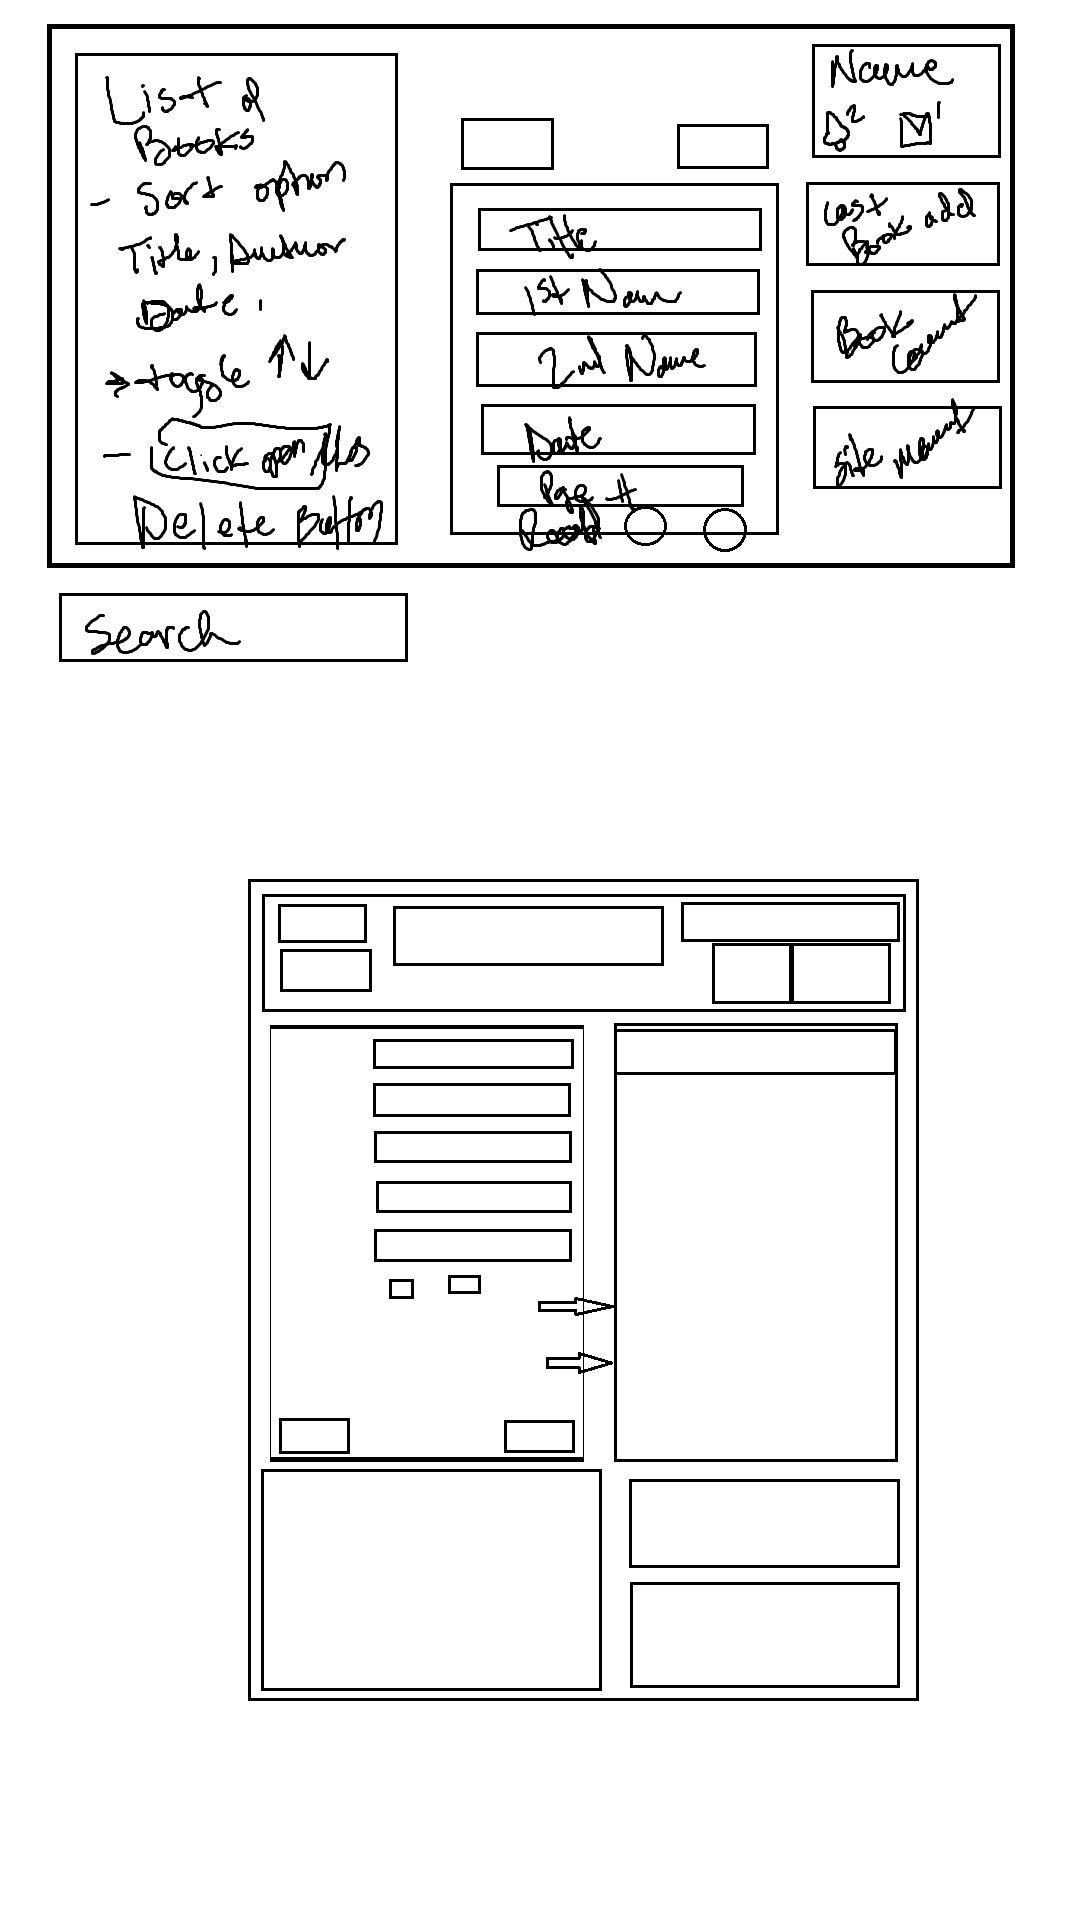 List of
Books
- Sort option
Title, Author
Date,
→ toggle ↑↓
- Click open
Delete Button
Title
1st Name
2nd Name
Date
Page #
Read
Name
2 1
Last
Book add
Book
Count
Site
Search